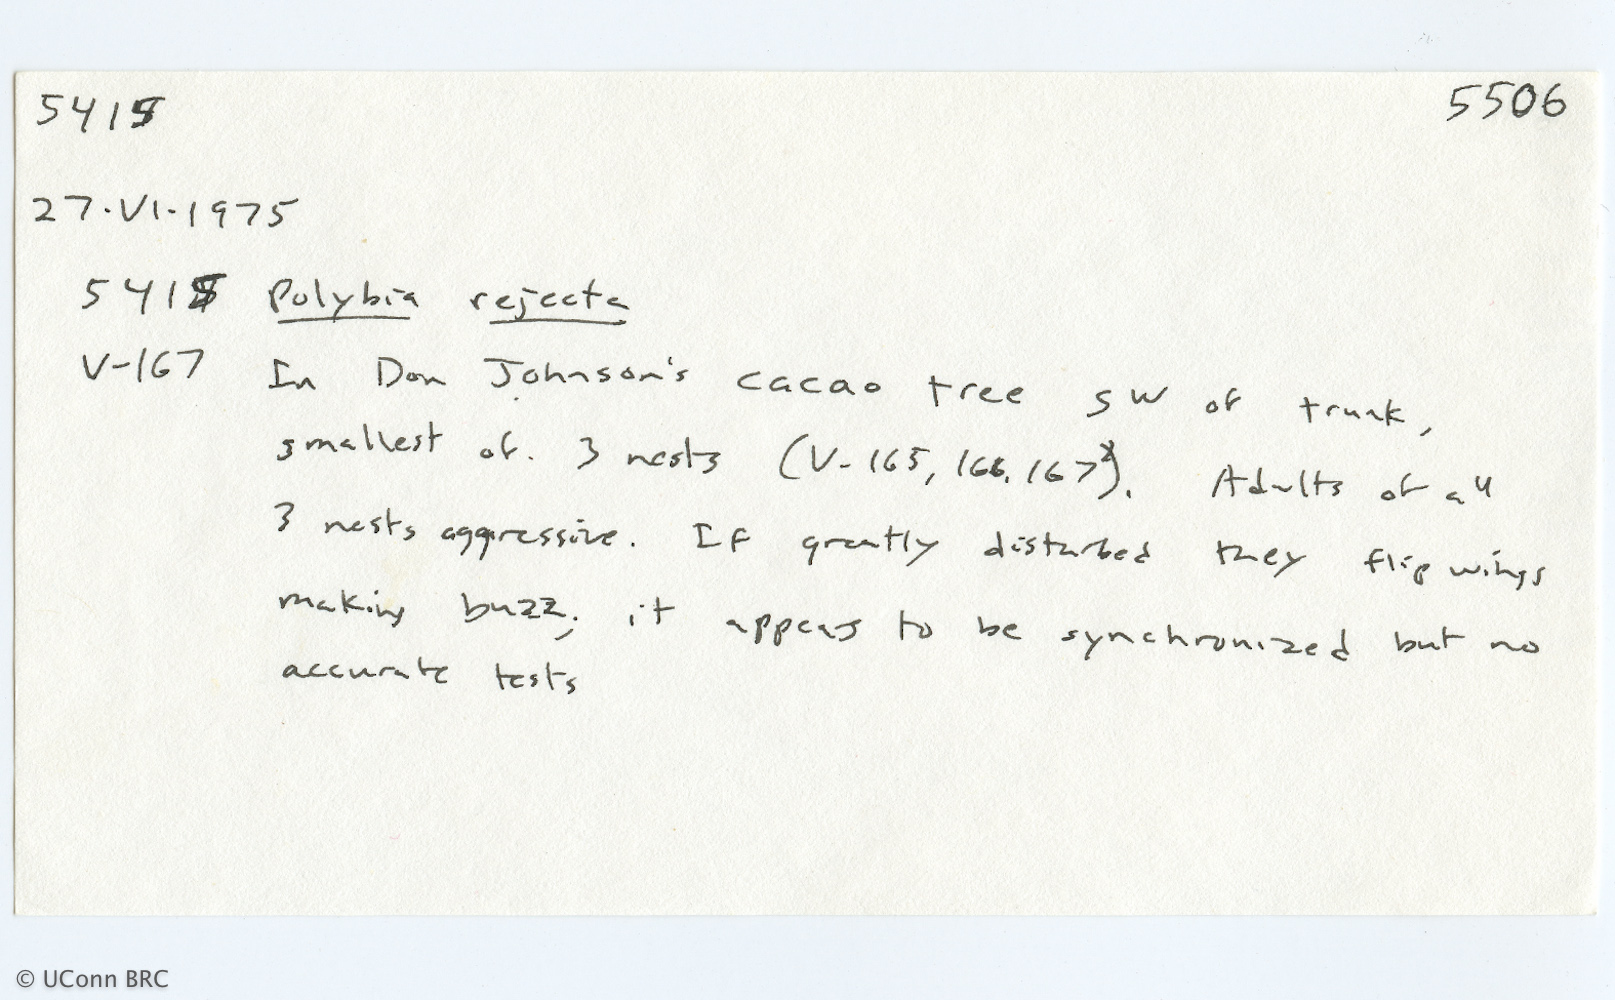 5415 5506
27.VI.1975
5415 Polybia rejecta
V-167 In Don Johnson's cacao tree SW of trunk,
smallest of. 3 nests (V-165, 166, 167). Adults of all
3 nests aggressive. If greatly disturbed they flip wings
making buzz; it appears to be synchronized but no
accurate tests
© UConn BRC